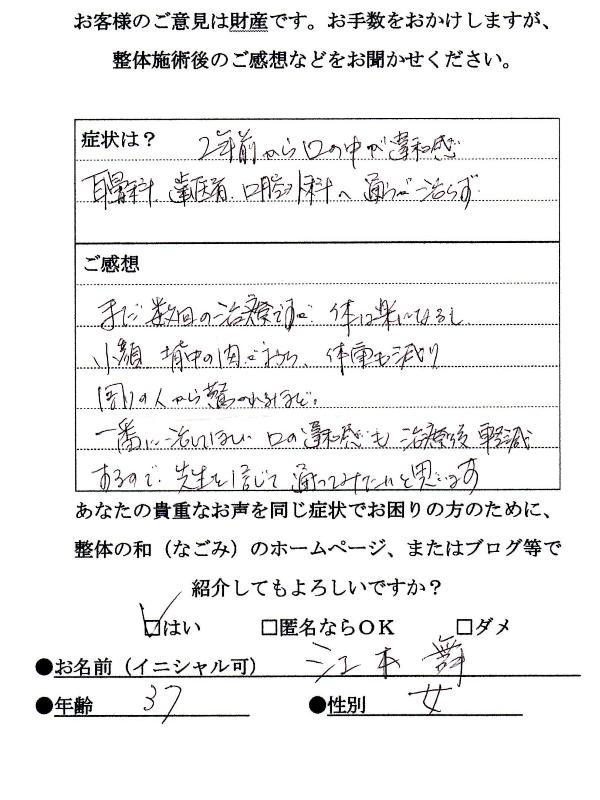 お客様のご意見は財産です。お手数をおかけしますが、
整体施術後のご感想などをお聞かせください。
症状は？ 2年前から口の中が違和感
耳鼻科、歯医者、口腔外科へ通うが治らず
ご感想
まだ数回の治療ですが、体は楽になるし
小顔、背中の肉がおちる、体重も減り
周りの人から驚かれるほど。
一番に治してほしい口の違和感も治療後軽減
するので、先生を信じて通ってみたいと思います
あなたの貴重なお声を同じ症状でお困りの方のために、
整体の和（なごみ）のホームページ、またはブログ等で
紹介してもよろしいですか？
☑はい □匿名ならOK □ダメ
●お名前（イニシャル可） 江本 舞
●年齢 37 ●性別 女